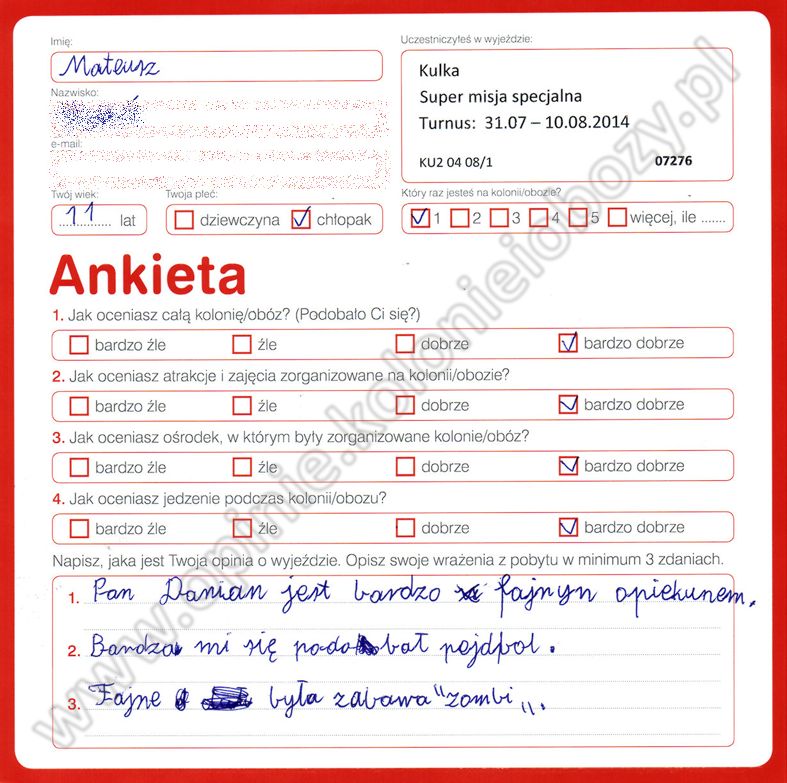 Imię:
Uczestniczyłeś w wyjeździe:
Mateusz
Kulka
Super misja specjalna
Turnus: 31.07 – 10.08.2014
KU2 04 08/1 07276
Nazwisko:
e-mail:
Twój wiek:
Twoja płeć:
Który raz jesteś na kolonii/obozie?
11 lat
dziewczyna chłopak
1 2 3 4 5 więcej, ile .......
Ankieta
1. Jak oceniasz całą kolonię/obóz? (Podobało Ci się?)
bardzo źle źle dobrze bardzo dobrze
2. Jak oceniasz atrakcje i zajęcia zorganizowane na kolonii/obozie?
bardzo źle źle dobrze bardzo dobrze
3. Jak oceniasz ośrodek, w którym były zorganizowane kolonie/obóz?
bardzo źle źle dobrze bardzo dobrze
4. Jak oceniasz jedzenie podczas kolonii/obozu?
bardzo źle źle dobrze bardzo dobrze
Napisz, jaka jest Twoja opinia o wyjeździe. Opisz swoje wrażenia z pobytu w minimum 3 zdaniach.
1. Pan Damian jest bardzo fajnyn opiekunem.
2. Bardzo mi się podobał pejdpol.
3. Fajne była zabawa "zombi„.
www.opinie.kolonieiobozy.pl